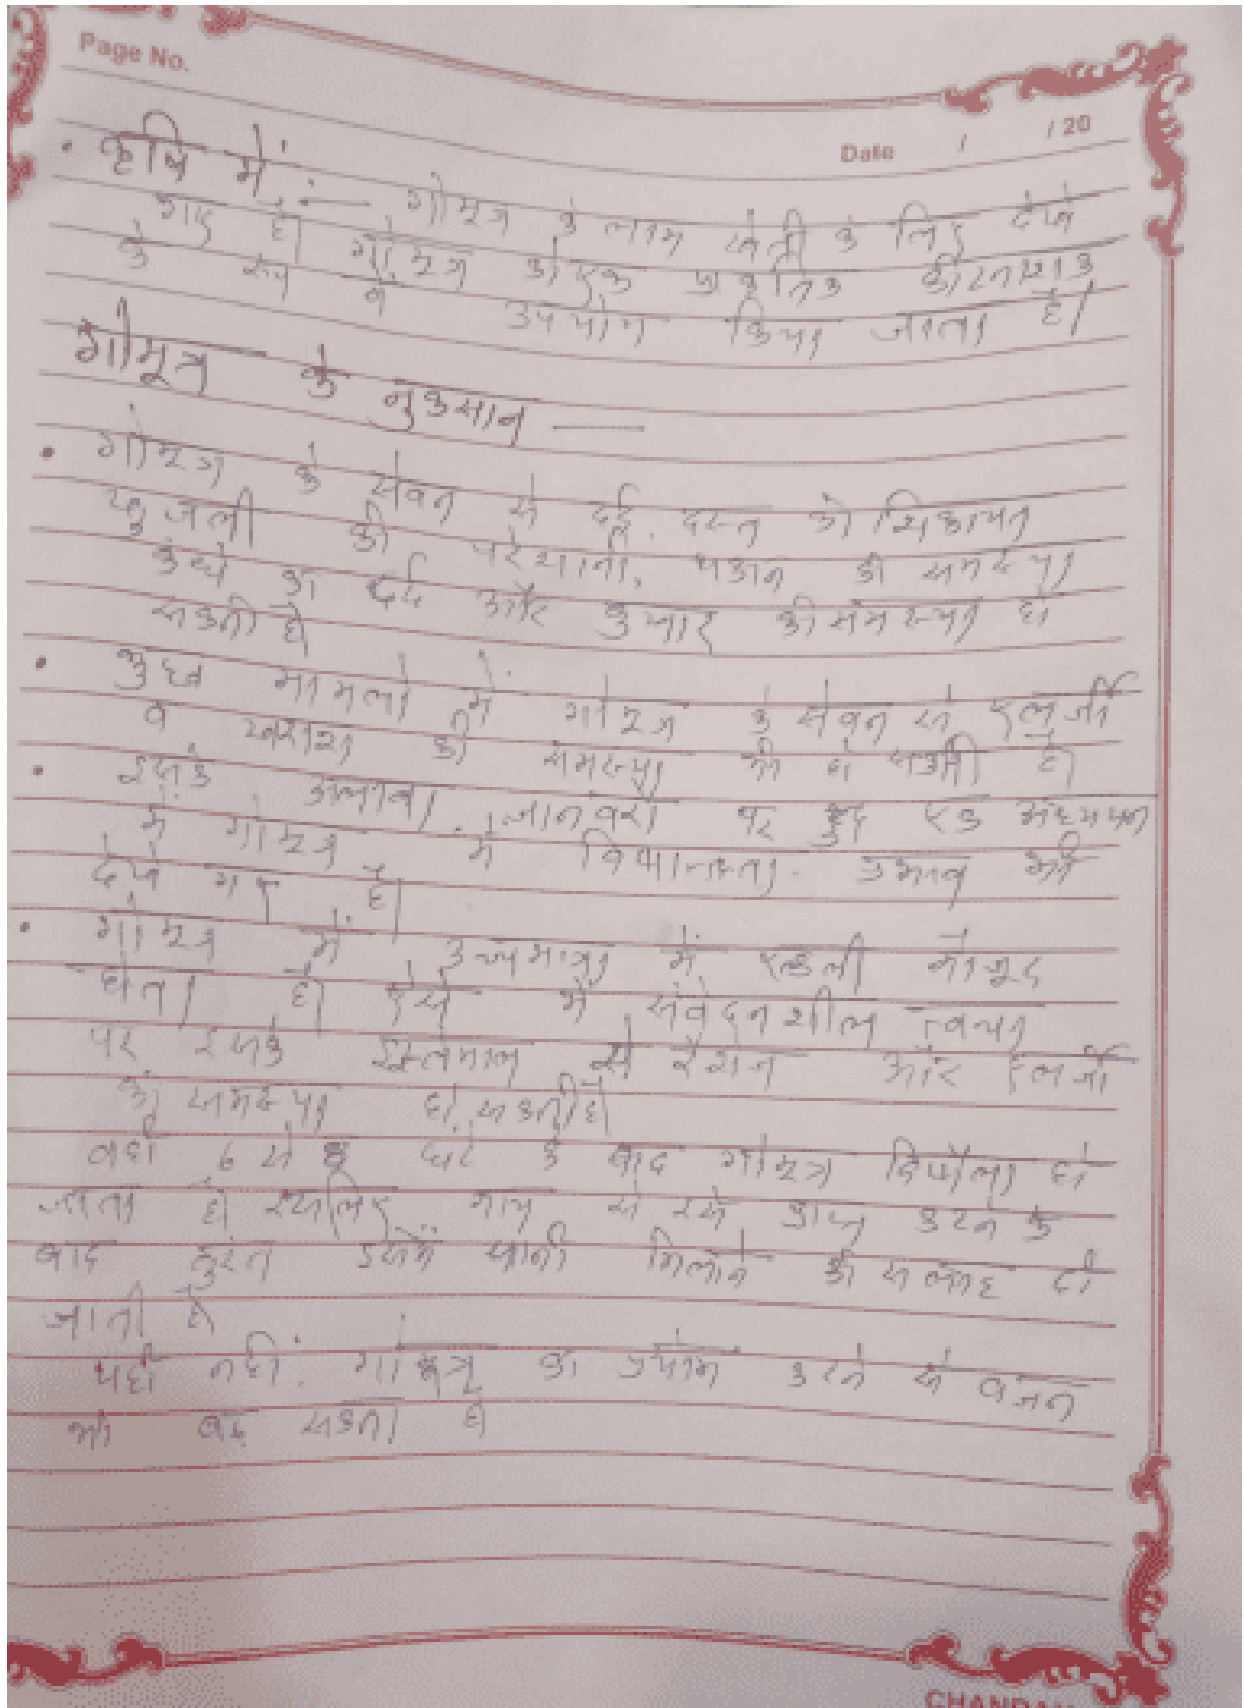 Page No.
Date / / 20
• कृषि में :— गोमूत्र के लाभ खेती के लिए देखे
गए है। गोमूत्र को एक प्रकृतिक कीटनाशक
के रूप में उपयोग किया जाता है।
गोमूत्र के नुकसान —
• गोमूत्र के सेवन से दर्द, दस्त की शिकायत
खुजली की परेशानी, थकान की समस्या
कंधे का दर्द और बुखार की समस्या हो
सकती है।
• कुछ मामलो में गोमूत्र के सेवन से एलर्जी
व खराश की समस्या भी हो सकती है।
• इसके अलावा जानवरों पर हुए एक अध्ययन
में गोमूत्र में विषाक्तता प्रभाव भी
देखे गए है।
• गोमूत्र में उच्च मात्रा में मौजूद
होता है। ऐसे में संवेदनशील त्वचा
पर इसके इस्तेमाल से रैशेज और एलर्जी
की समस्या हो सकती है।
वही 6 से घंटे के बाद गोमूत्र विषैला हो
जाता है। इसलिए गाय से इसे प्राप्त करने के
बाद तुरंत इसमें पानी मिलाने की सलाह दी
जाती है
यही नहीं. गोमूत्र का प्रयोग करने से वजन
भी बढ़ सकता है
CHANDA